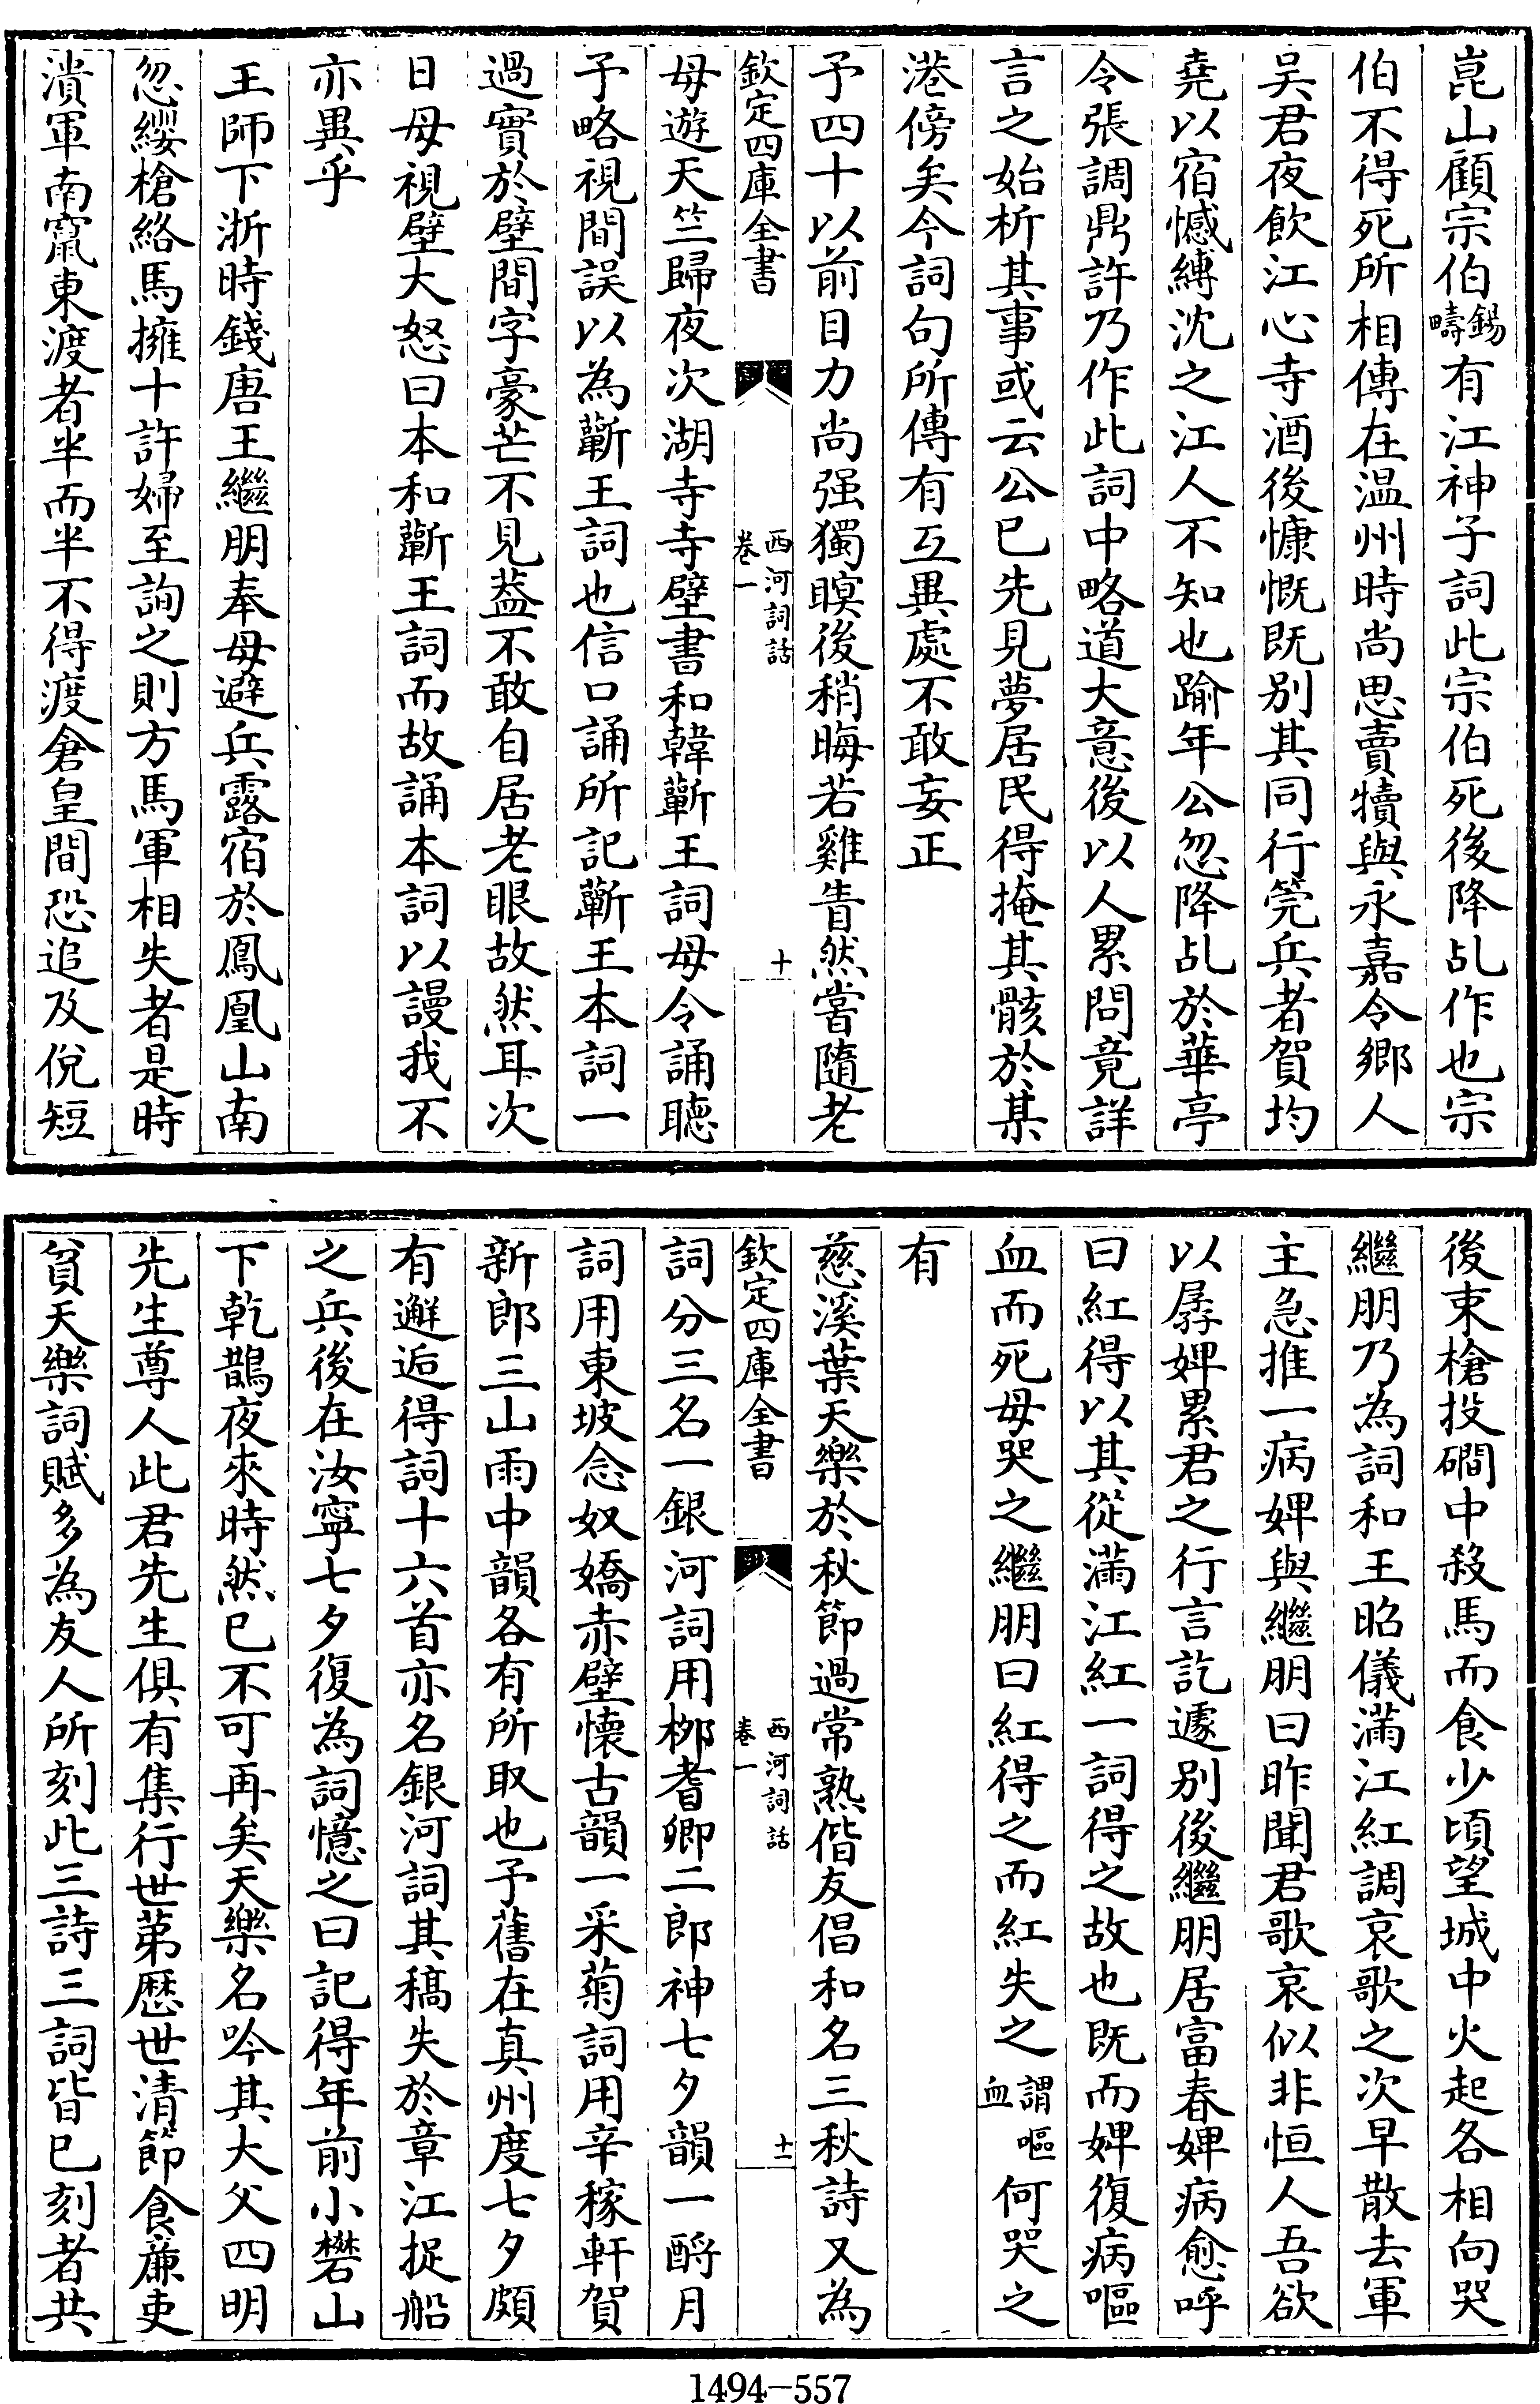 崑山顧宗伯錫疇有江神子詞此宗伯死後降乩作也宗
伯不得死所相傳在温州時尚思賣犢與永嘉令鄉人
吴君夜飲江心寺酒後慷慨既别其同行筦兵者賀均
堯以宿憾縛沈之江人不知也踰年公忽降乩於華亭
令張調鼎許乃作此詞中略道大意後以人累問竟詳
言之始析其事或云公已先見夢居民得掩其骸於某
港傍矣今詞句所傳有互異處不敢妄正
予四十以前目力尚强獨瞑後稍晦若雞眚然嘗隨老
欽定四庫全書
西河詞話
卷一
十
母遊天竺歸夜次湖寺寺壁書和韓蘄王詞母令誦聽
予略視間誤以為蘄王詞也信口誦所記蘄王本詞一
過實於壁間字豪芒不見葢不敢自居老眼故然耳次
日母視壁大怒曰本和蘄王詞而故誦本詞以謾我不
亦異乎
王師下浙時錢唐王繼朋奉母避兵露宿於鳳凰山南
忽纓槍絡馬擁十許婦至詢之則方馬軍相失者是時
潰軍南竄東渡者半而半不得渡倉皇間恐追及俛短
後束槍投磵中殺馬而食少頃望城中火起各相向哭
繼朋乃為詞和王昭儀滿江紅調哀歌之次早散去軍
主急推一病婢與繼朋曰昨聞君歌哀似非恒人吾欲
以孱婢累君之行言訖遽别後繼朋居富春婢病愈呼
曰紅得以其從滿江紅一詞得之故也既而婢復病嘔
血而死母哭之繼朋曰紅得之而紅失之謂嘔血何哭之
有
慈溪葉天樂於秋節過常熟偕友倡和名三秋詩又為
欽定四庫全書
西河詞話
卷一
十一
詞分三名一銀河詞用栁耆卿二郎神七夕韻一酹月
詞用東坡念奴嬌赤壁懷古韻一采菊詞用辛稼軒賀
新郎三山雨中韻各有所取也予舊在真州度七夕頗
有邂逅得詞十六首亦名銀河詞其稿失於章江捉船
之兵後在汝寧七夕復為詞憶之曰記得年前小礬山
下乾鵲夜來時然已不可再矣天樂名吟其大父四明
先生尊人此君先生俱有集行世苐歷世清節食亷吏
貧天樂詞賦多為友人所刻此三詩三詞皆已刻者共
1494-557